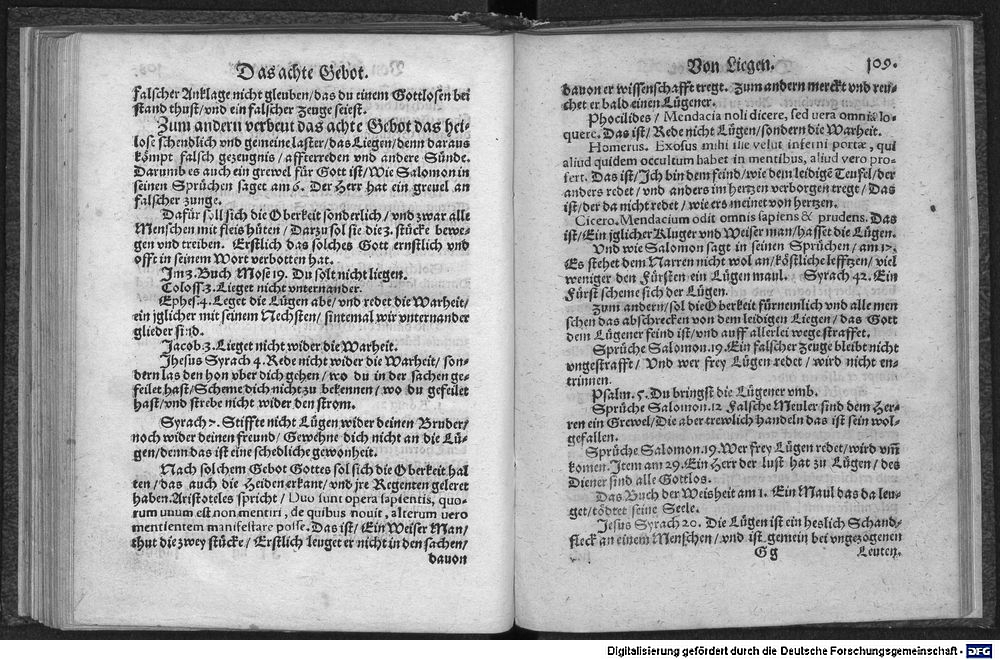 Das achte Gebot.
falscher Anklage nicht gleuben/das du einem Gottlosen bei
stand thust/vnd ein falscher Zeuge seiest.
Zum andern verbeut das achte Gebot das hei-
lose schendlich vnd gemeine laster/das Liegen/denn daraus
kömpt falsch gezeugnis/affterreden vnd andere Sünde.
Darumb es auch ein grewel für Gott ist/Wie Salomon in
seinen Sprüchen saget am 6. Der Herr hat ein greuel an
falscher zunge.
Dafür soll sich die Oberkeit sonderlich/vnd zwar alle
Menschen mit fleis hüten/Darzu sol sie die 3. stücke bewe-
gen vnd treiben. Erstlich das solches Gott ernstlich vnd
offt in seinem Wort verbotten hat.
Im 3. Buch Mose 19. Du solt nicht liegen.
Coloss. 3. Lieget nicht vnternander.
Ephes. 4. Leget die Lügen abe/vnd redet die Warheit/
ein jglicher mit seinem Nechsten/sintemal wir vnternander
glieder sind.
Jacob. 3. Lieget nicht wider die Warheit.
Jhesus Syrach 4. Rede nicht wider die Warheit/son-
dern las den hon vber dich gehen/wo du in der sachen ge-
feilet hast/Scheme dich nicht zu bekennen/wo du gefeilet
hast/vnd strebe nicht wider den strom.
Syrach 7. Stiffte nicht Lügen wider deinen Bruder/
noch wider deinen freund/Gewehne dich nicht an die Lü-
gen/denn das ist eine schedliche gewonheit.
Nach solchem Gebot Gottes sol sich die Oberkeit hal
ten/das auch die Heiden erkant/vnd jre Regenten geleret
haben. Aristoteles spricht/Duo sunt opera sapientis, quo-
rum unum est non mentiri, de quibus nouit, alterum vero
mentientem manifestare posse. Das ist/Ein Weiser Man/
thut die zwey stücke/Erstlich leuget er nicht in den sachen/
dauon
Von Liegen. 109.
dauon er wissenschafft tregt. Zum andern merckt vnd reu-
chet er bald einen Lügener.
Phocilides/Mendacia noli dicere, sed uera omnia lo-
quere. Das ist/Rede nicht Lügen/sondern die Warheit.
Homerus. Exosus mihi ille velut inferni portæ, qui
aliud quidem occultum habet in mentibus, aliud vero pro-
fert. Das ist/Ich bin dem feind/wie dem leidigẽ Teufel/der
anders redet/vnd anders im hertzen verborgen tregt/Das
ist/der da nicht redet/wie ers meinet von hertzen.
Cicero. Mendacium odit omnis sapiens & prudens. Das
ist/Ein jglicher Kluger vnd Weiser man/hasset die Lügen.
Vnd wie Salomon sagt in seinen Sprüchen/am 17.
Es stehet dem Narren nicht wol an/köstliche lefftzen/viel
weniger den Fürsten ein Lügen maul. Syrach 42. Ein
Fürst scheme sich der Lügen.
Zum andern/sol die Oberkeit fürnemlich vnd alle men
schen das abschrecken von dem leidigen Liegen/das Gott
dem Lügener feind ist/vnd auff allerlei wege straffet.
Sprüche Salomon. 19. Ein falscher Zeuge bleibt nicht
vngestrafft/Vnd wer frey Lügen redet/wird nicht en-
trinnen.
Psalm. 5. Du bringst die Lügener vmb.
Sprüche Salomon. 12 Falsche Meuler sind dem Her-
ren ein Grewel/Die aber trewlich handeln das ist sein wol-
gefallen.
Sprüche Salomon. 19. Wer frey Lügen redet/wird vm̃
komen. Item am 29. Ein Herr der lust hat zu Lügen/des
Diener sind alle Gottlos.
Das Buch der Weisheit am 1. Ein Maul das da leu-
get/tödtet seine Seele.
Jesus Syrach 20. Die Lügen ist ein heslich Schand-
fleck an einem Menschen/vnd ist gemein bei vngezogenen
Gg Leuten.
Digitalisierung gefördert durch die Deutsche Forschungsgemeinschaft - DFG